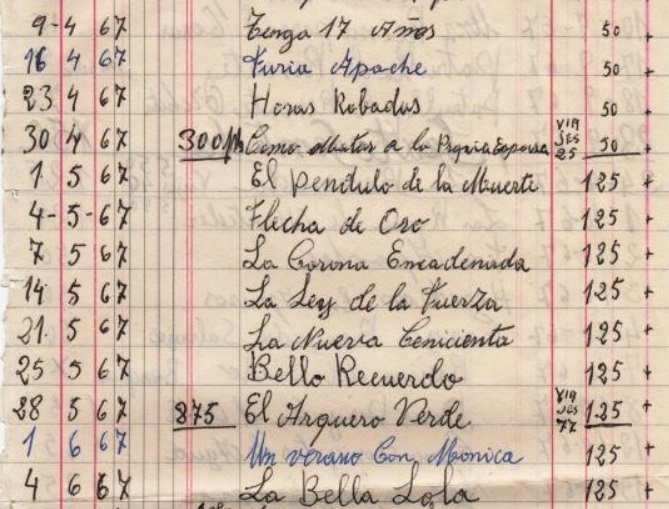 9-4 67 Tengo 17 Años 50 +
16 4 67 Furia Apache 50 +
23 4 67 Horas Robadas 50 +
30 4 67 300 Como Matar a la Propia Esposa VIAJES 25 50 +
1 5 67 El Pendulo de la Muerte 125 +
4-5-67 Flecha de Oro 125 +
7 5 67 La Corona Encadenada 125 +
14 5 67 La Ley de la Fuerza 125 +
21 5 67 La Nueva Cenicienta 125 +
25 5 67 Bello Recuerdo 125 +
28 5 67 875 El Arquero Verde VIAJES 77 125 +
1 6 67 Un verano Con Monica 125 +
4 6 67 La Bella Lola 125 +